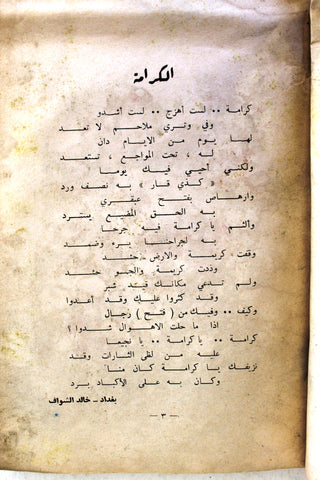 الكرامة
كرامة .. لست أهزج .. لست أشدو
وفي وتري ملاحم لا تعد
لها يوم من الايام دان
له ، تحت المواجع ، تستعد
ولكني أحيي فيك يوما
« كذي قار » به نصف ورد
وارهاص بفتح عبقري
به الحق المضيع يسترد
وألثم يا كرامة فيه جرحا
به لجراحنا برء وضمد
وقفت كريمة والارض
وددت كريمة والجو حشد
ولم تدعي مكانك قيد شبر
وقد كثروا عليك وقد أعدوا
وكيف .. وفيك من ( فتح ) رجال
اذا ما حلت الاهوال شدوا ؟
كرامة .. يا كرامة .. يا نجيعا
عليه من لظى الثارات وقد
نزيفك يا كرامة كان منا
وكان به على الأكباد برد
بغداد – خالد الشواف
– ٣ –